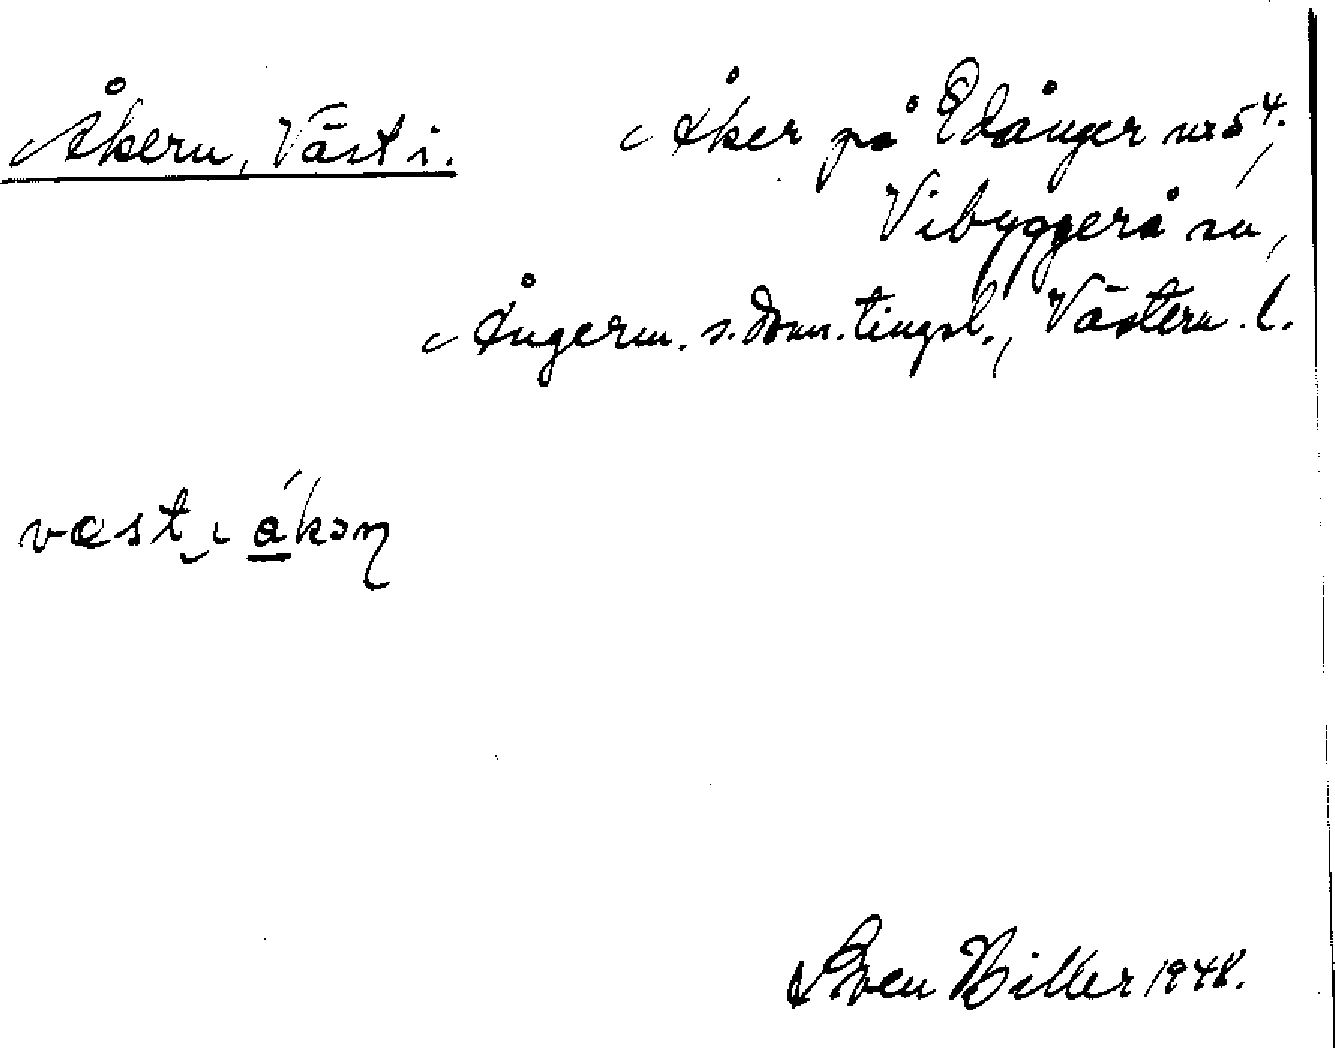 Åkern, Väst i.
Åker på Edånger nr 5⁴,
Vibyggerå sn,
Ångerm. s. dom. tingsl., Västern. l.
væst‿ı ákən
Sven Hiller 1948.